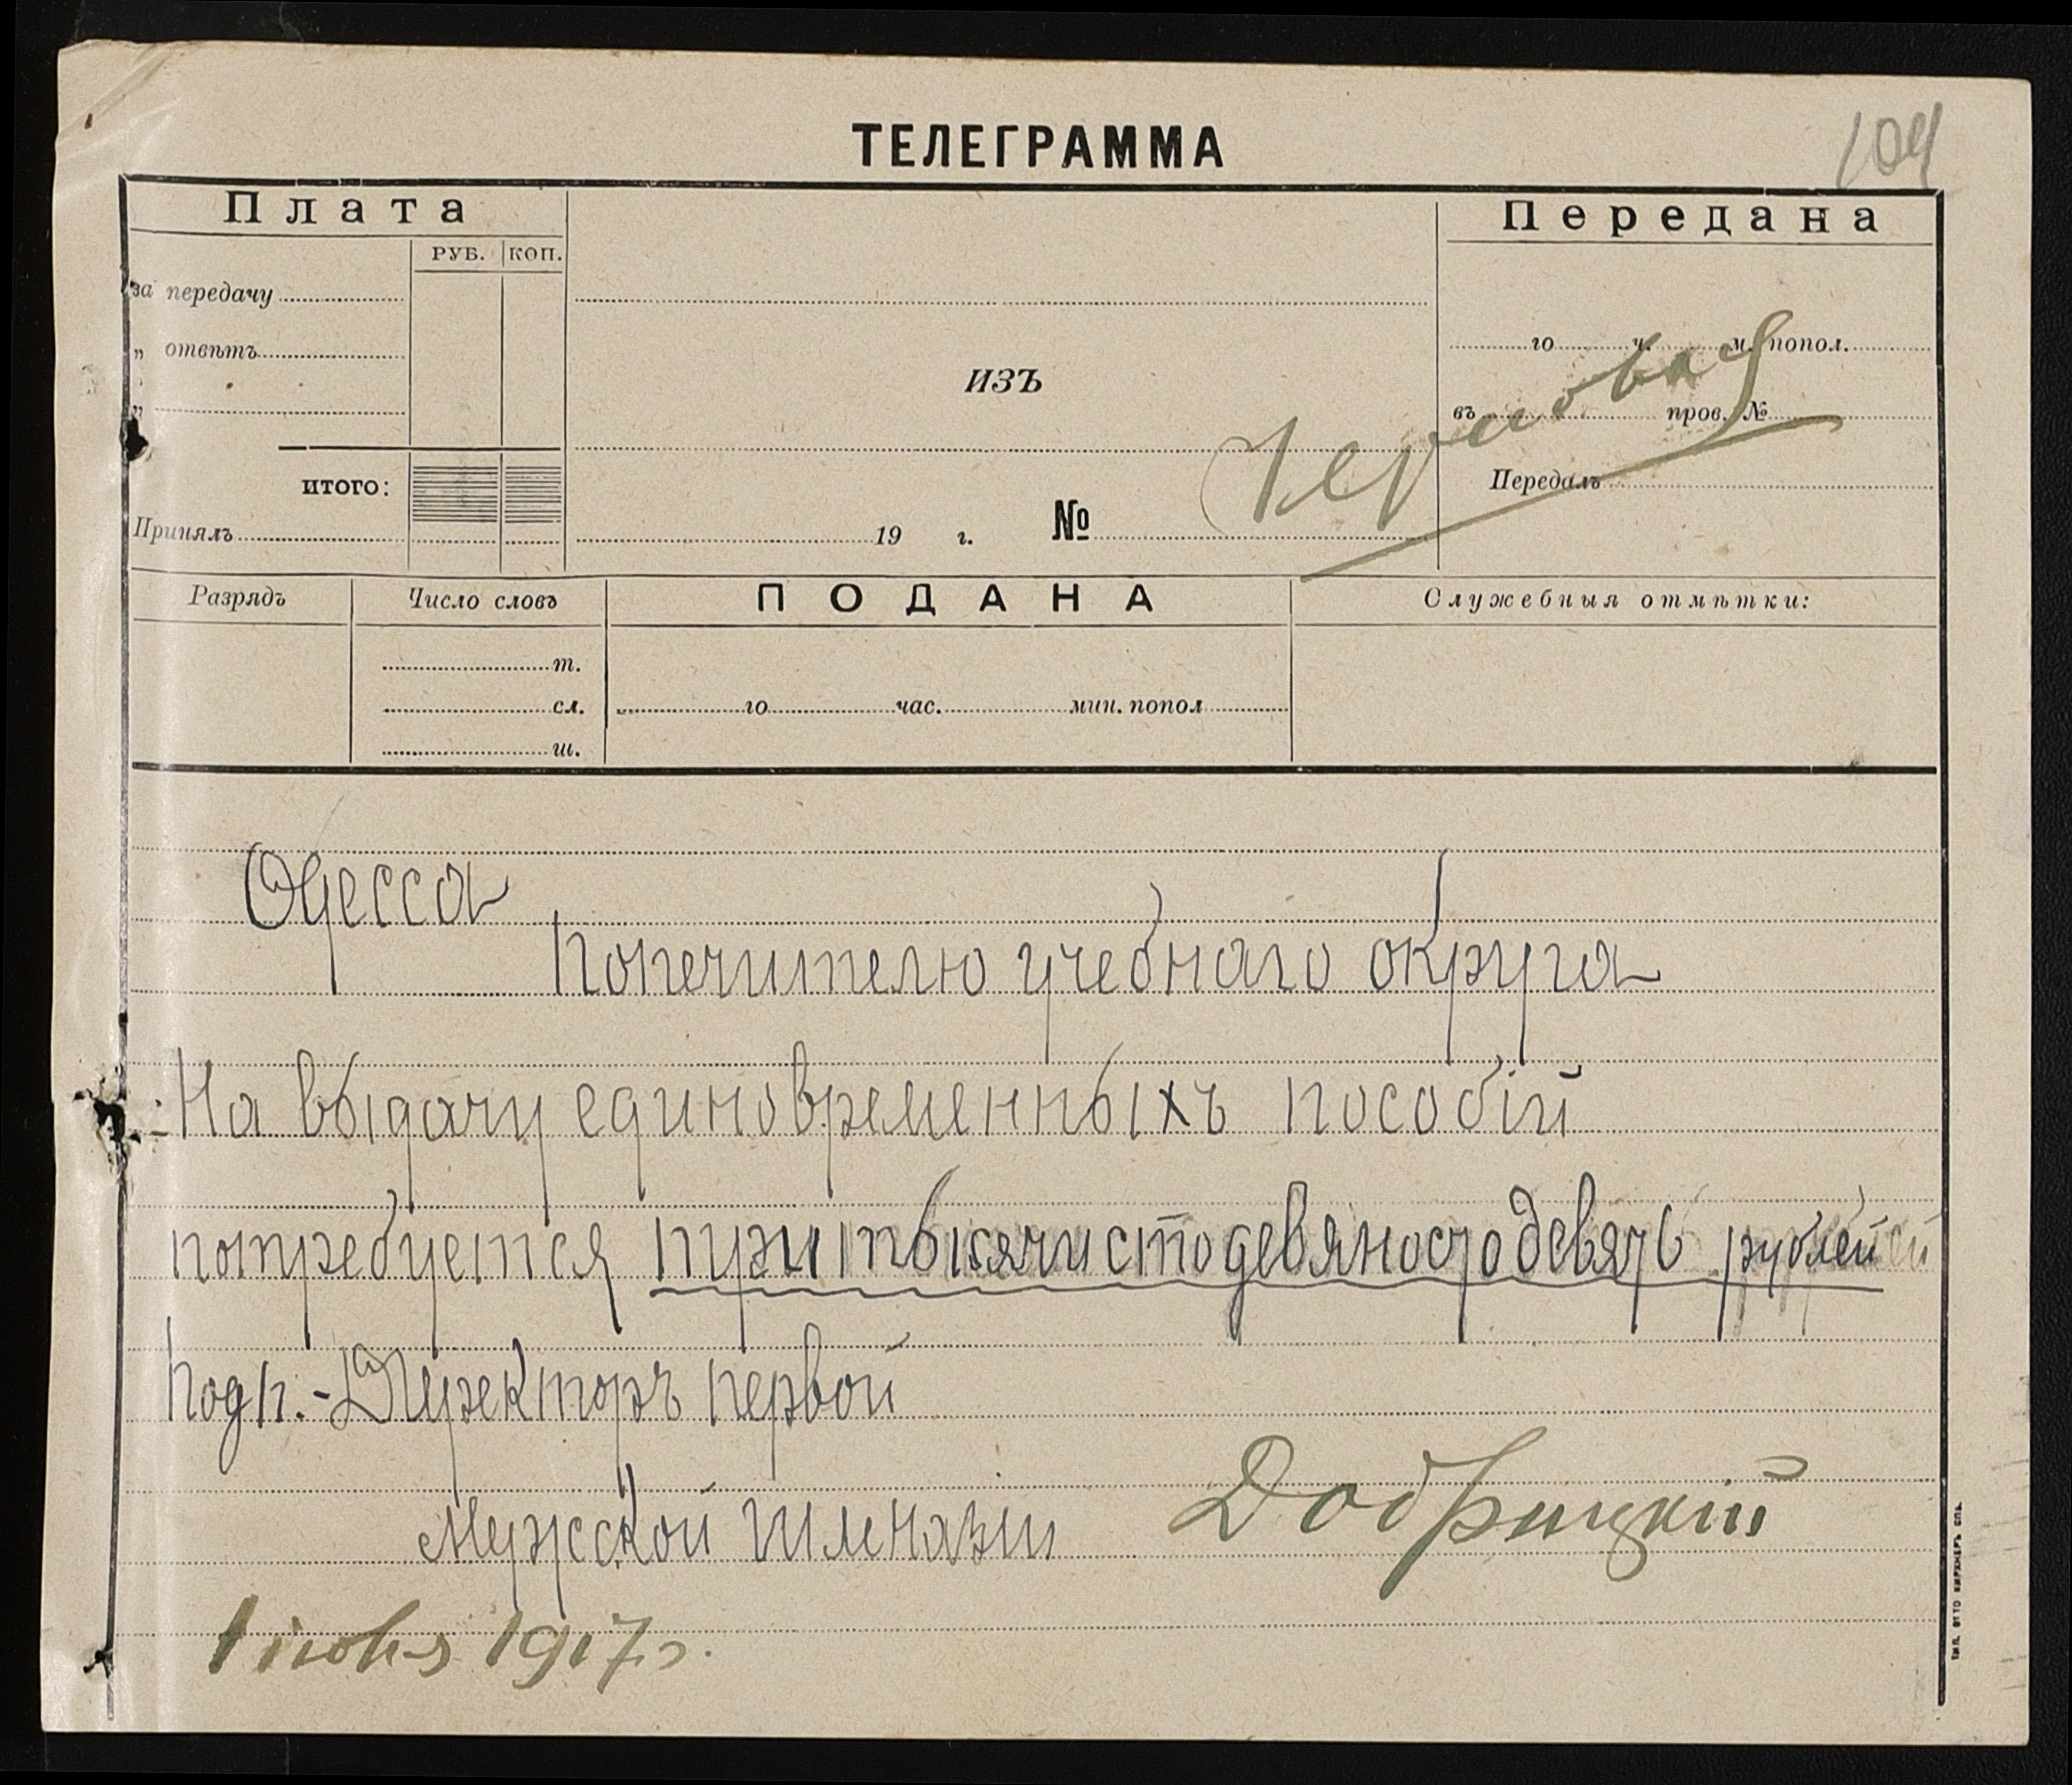 104
ТЕЛЕГРАММА
Плата
РУБ. КОП.
за передачу
„ отвѣтъ
„
итого:
Принялъ
изъ
19 г. №
Черновая
Передана
го ч. м. попол.
въ пров. №
Передалъ
Разрядъ
Число словъ
т.
сл.
ш.
ПОДАНА
го час. мин. попол
Служебныя отмѣтки:
Одесса
Попечителю учебнаго округа
На выдачу единовременныхъ пособій
потребуется три тысячи сто девяносто девять рублей
Подп.-Директоръ первой
мужской гимназіи Добрицкій
1 іюня 1917 г.
ТИП. ОТТО КИРХНЕРЪ СПБ.